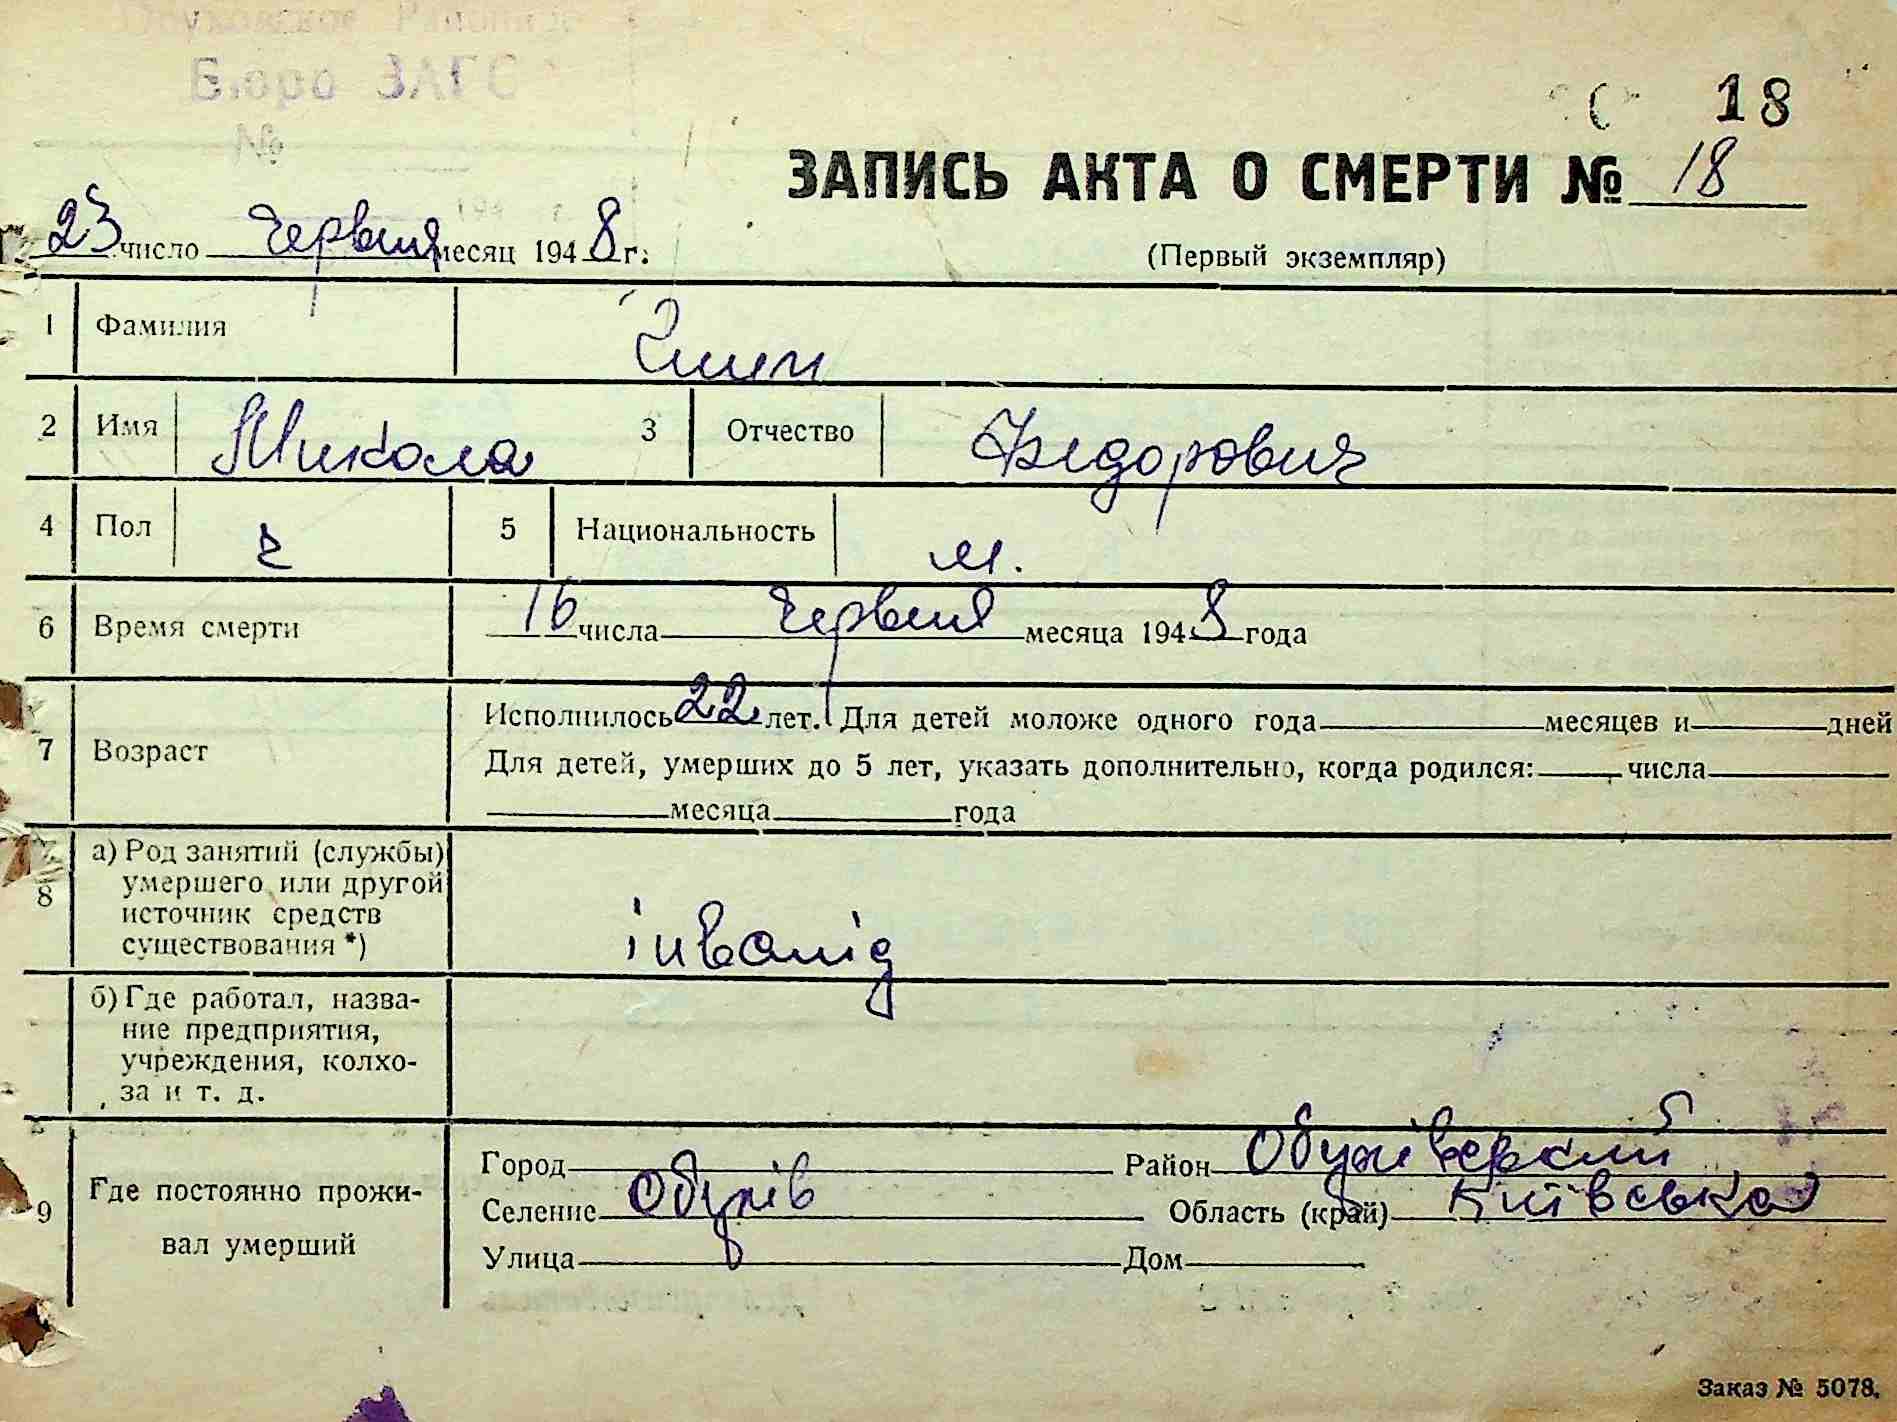 Обуховское Районное
Бюро ЗАГС
№
18
ЗАПИСЬ АКТА О СМЕРТИ № 18
194 г.
23 число Червня месяц 1948 г.
(Первый экземпляр)
1 Фамилия
2 Имя Микола 3 Отчество Федорович
4 Пол ч 5 Национальность
6 Время смерти 16 числа Червня месяца 1948 года
7 Возраст
Исполнилось 22 лет. Для детей моложе одного года месяцев и дней
Для детей, умерших до 5 лет, указать дополнительно, когда родился: числа
месяца года
8 а) Род занятий (службы)
умершего или другой
источник средств
существования *)
інвалід
б) Где работал, назва-
ние предприятия,
учреждения, колхо-
за и т. д.
9 Где постоянно прожи-
вал умерший
Город Район Обухівский
Селение Обухів Область (край) Київська
Улица Дом
Заказ № 5078.